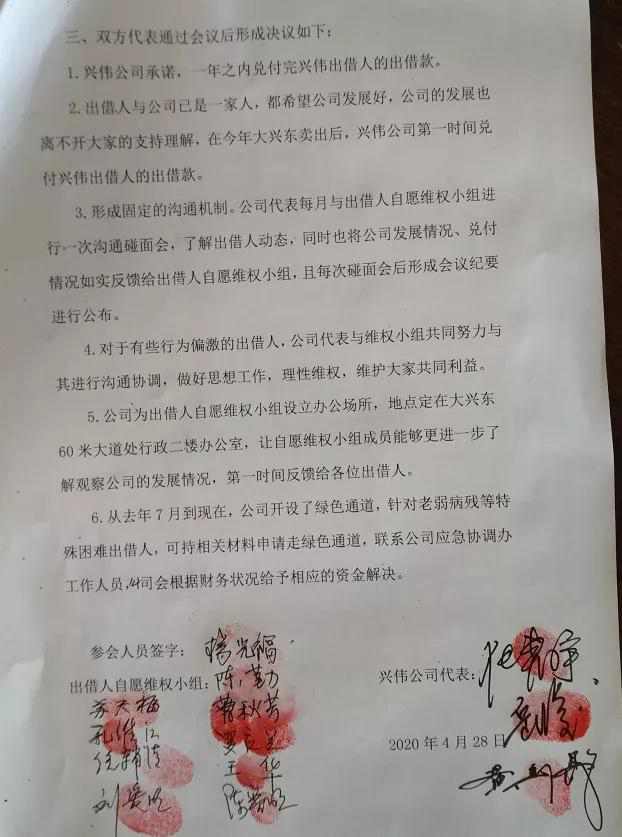 三、双方代表通过会议后形成决议如下：
1.兴伟公司承诺，一年之内兑付完兴伟出借人的出借款。
2.出借人与公司已是一家人，都希望公司发展好，公司的发展也
离不开大家的支持理解，在今年大兴东卖出后，兴伟公司第一时间兑
付兴伟出借人的出借款。
3.形成固定的沟通机制。公司代表每月与出借人自愿维权小组进
行一次沟通碰面会，了解出借人动态，同时也将公司发展情况、兑付
情况如实反馈给出借人自愿维权小组，且每次碰面会后形成会议纪要
进行公布。
4.对于有些行为偏激的出借人，公司代表与维权小组共同努力与
其进行沟通协调，做好思想工作，理性维权，维护大家共同利益。
5.公司为出借人自愿维权小组设立办公场所，地点定在大兴东
60米大道处行政二楼办公室，让自愿维权小组成员能够更进一步了
解观察公司的发展情况，第一时间反馈给各位出借人。
6.从去年7月到现在，公司开设了绿色通道，针对老弱病残等特
殊困难出借人，可持相关材料申请走绿色通道，联系公司应急协调办
工作人员，公司会根据财务状况给予相应的资金解决。
参会人员签字：
出借人自愿维权小组：陈
曹秋芳
王华
兴伟公司代表：
2020年4月28日